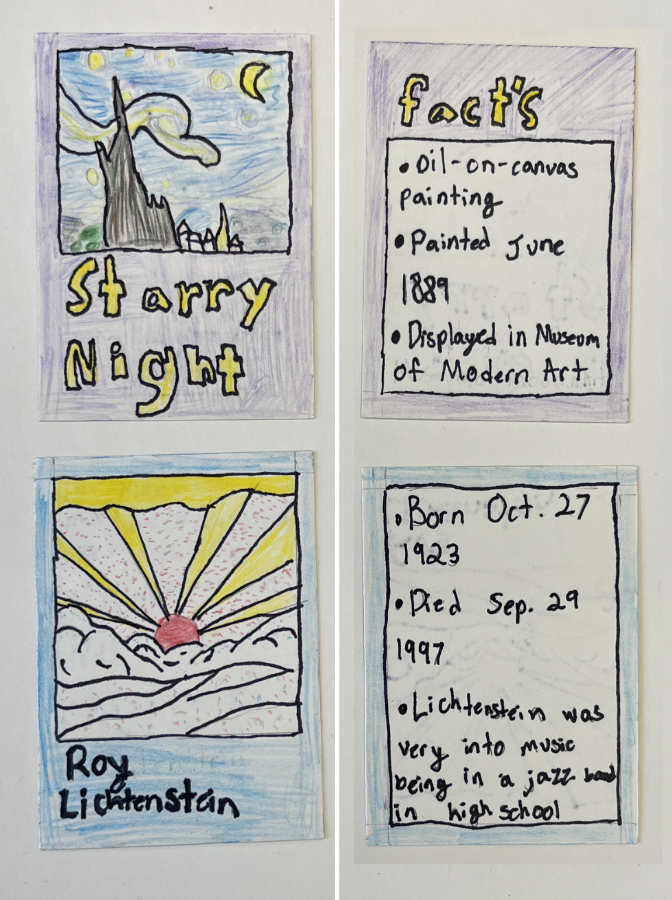 Starry
Night
fact's
• Oil-on-canvas
painting
• Painted June
1889
• Displayed in Museum
of Modern Art
Roy
Lichtenstein
• Born Oct. 27
1923
• Died Sep. 29
1997
• Lichtenstein was
very into music
being in a jazz band
in high school